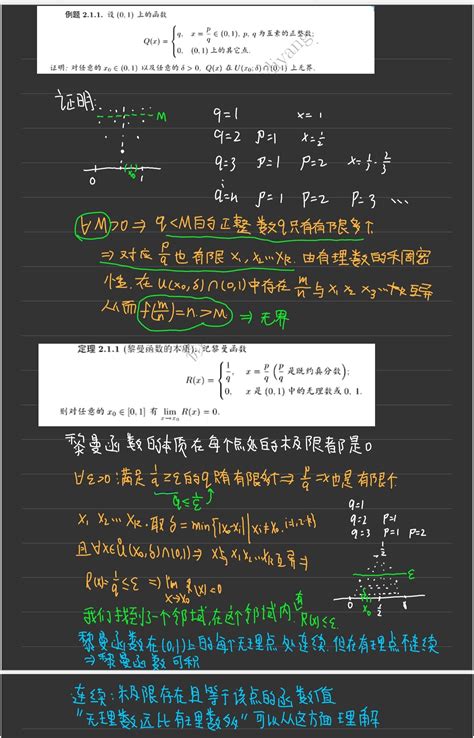 例题 2.1.1. 设 (0,1) 上的函数
Q(x) = { q, x = p/q ∈ (0,1), p, q 为互素的正整数;
0, (0,1) 上的其它点.
证明: 对任意的 x₀ ∈ (0,1) 以及任意的 δ > 0, Q(x) 在 U(x₀;δ)∩(0,1) 上无界.
证明:
M
0 x₀ 1
q=1 x=1
q=2 p=1 x=1/2
q=3 p=1 p=2 x=1/3, 2/3
q=n p=1 p=2 p=3 ...
∀M>0 ⇒ q<M的正整数q只有有限多个
⇒ 对应 p/q 也有限 x₁, x₂...x_k. 由有理数的稠密
性. 在 U(x₀,δ)∩(0,1)中存在 m/n 与 x₁ x₂ x₃...x_k 互异
从而 f(m/n)=n>M ⇒ 无界
定理 2.1.1 (黎曼函数的本质). 记黎曼函数
R(x) = { 1/q, x = p/q (p/q 是既约真分数);
0, x 是 (0,1) 中的无理数及 0, 1.
则对任意的 x₀ ∈ [0,1] 有 lim x→x₀ R(x) = 0.
黎曼函数的本质在每个点处的极限都是0
∀ε>0: 满足 1/q ≥ε的q只有有限个 ⇒ p/q =x也是有限个
q≤1/ε
x₁ x₂ ... x_k. 取δ=min{|x₀-xᵢ| | xᵢ≠x₀, i=1,2..k}
q=1
q=2 p=1
q=3 p=1 p=2
且∀x∈Ů(x₀,δ)∩(0,1) ⇒ x与x₁,x₂...x_k互异
R(x)=1/q ≤ε ⇒ lim x→x₀ R(x)=0
1/2
ε
0 x₀ 1/2 1
我们找到了一个邻域,在这个邻域内有 R(x)≤ε
黎曼函数在(0,1)上的每个无理点处连续.但在有理点不连续
⇒黎曼函数可积
连续:极限存在且等于该点的函数值
"无理数远比有理数多" 可以从这方面理解